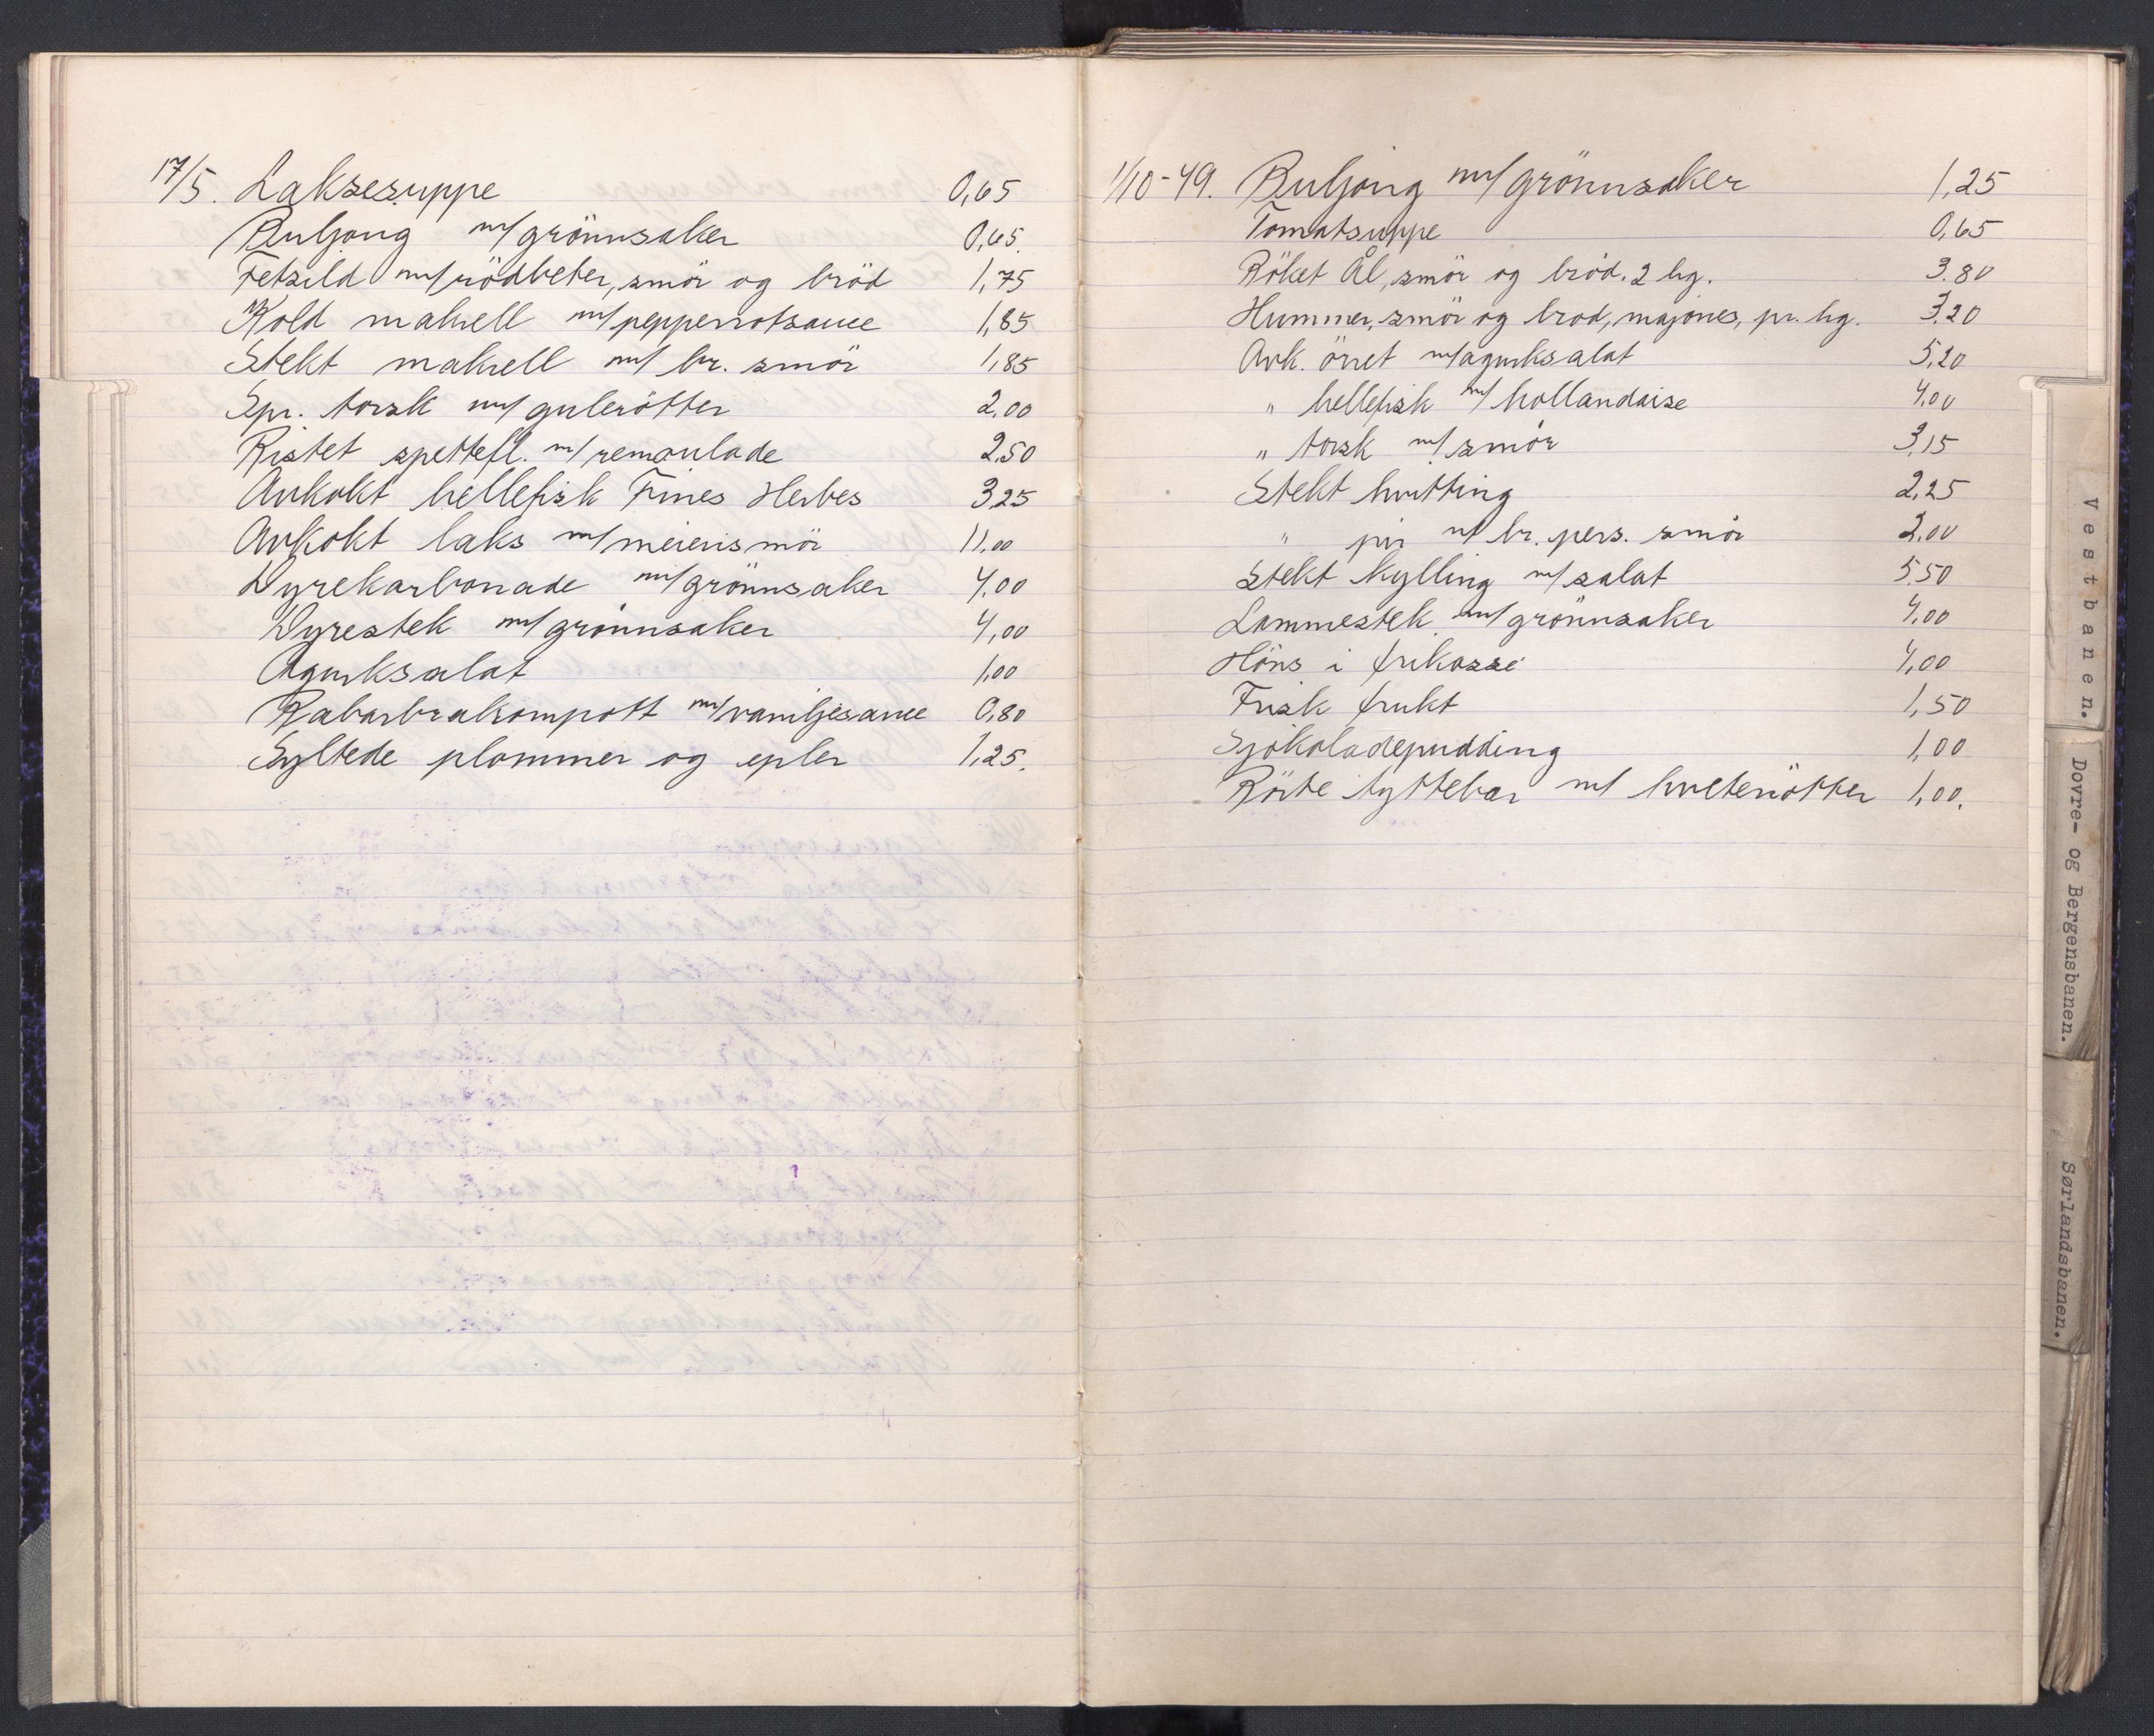 17/5. Laksesuppe 0,65
Buljong m/grönnsaker 0,65.
Fetsild m/rödbeter, smör og bröd 1,75
Kold makrell m/pepperrotsauce 1,85
Stekt makrell m/ br. smör 1,85
Spr. torsk m/gulerötter 2,00
Ristet spettefl. m/remoulade 2,50
Avkokt hellefisk Fines Herbes 3,25
Avkokt laks m/meierismör 11,00
Dyrekarbonade m/grönnsaker 4,00
Dyrestek m/grönnsaker 4,00
Agurksalat 1,00
Rabarbrakompott m/vaniljesauce 0,80
Syltede plommer og epler 1,25.
1/10-49. Buljong m/grönnsaker 1,25
Tomatsuppe 0,65
Röket Ål, smör og bröd. 2 hg. 3.80
Hummer, smör og brod, majones, pr. hg. 3,20
Avk. örret m/agurksalat 5,20
" hellefisk m/hollandaise 4,00
" torsk m/smör 3,15
Stekt hvitting 2,25
" pir m/ br. pers. smör 2,00
Stekt kylling m/salat 5,50
Lammestek m/grönnsaker 4,00
Höns i frikassé 4,00
Frisk frukt 1,50
Sjokoladepudding 1,00
Rörte tyttebær m/ hvetenötter 1,00.
Vestbanen.
Dovre- og Bergensbanen.
Sørlandsbanen.